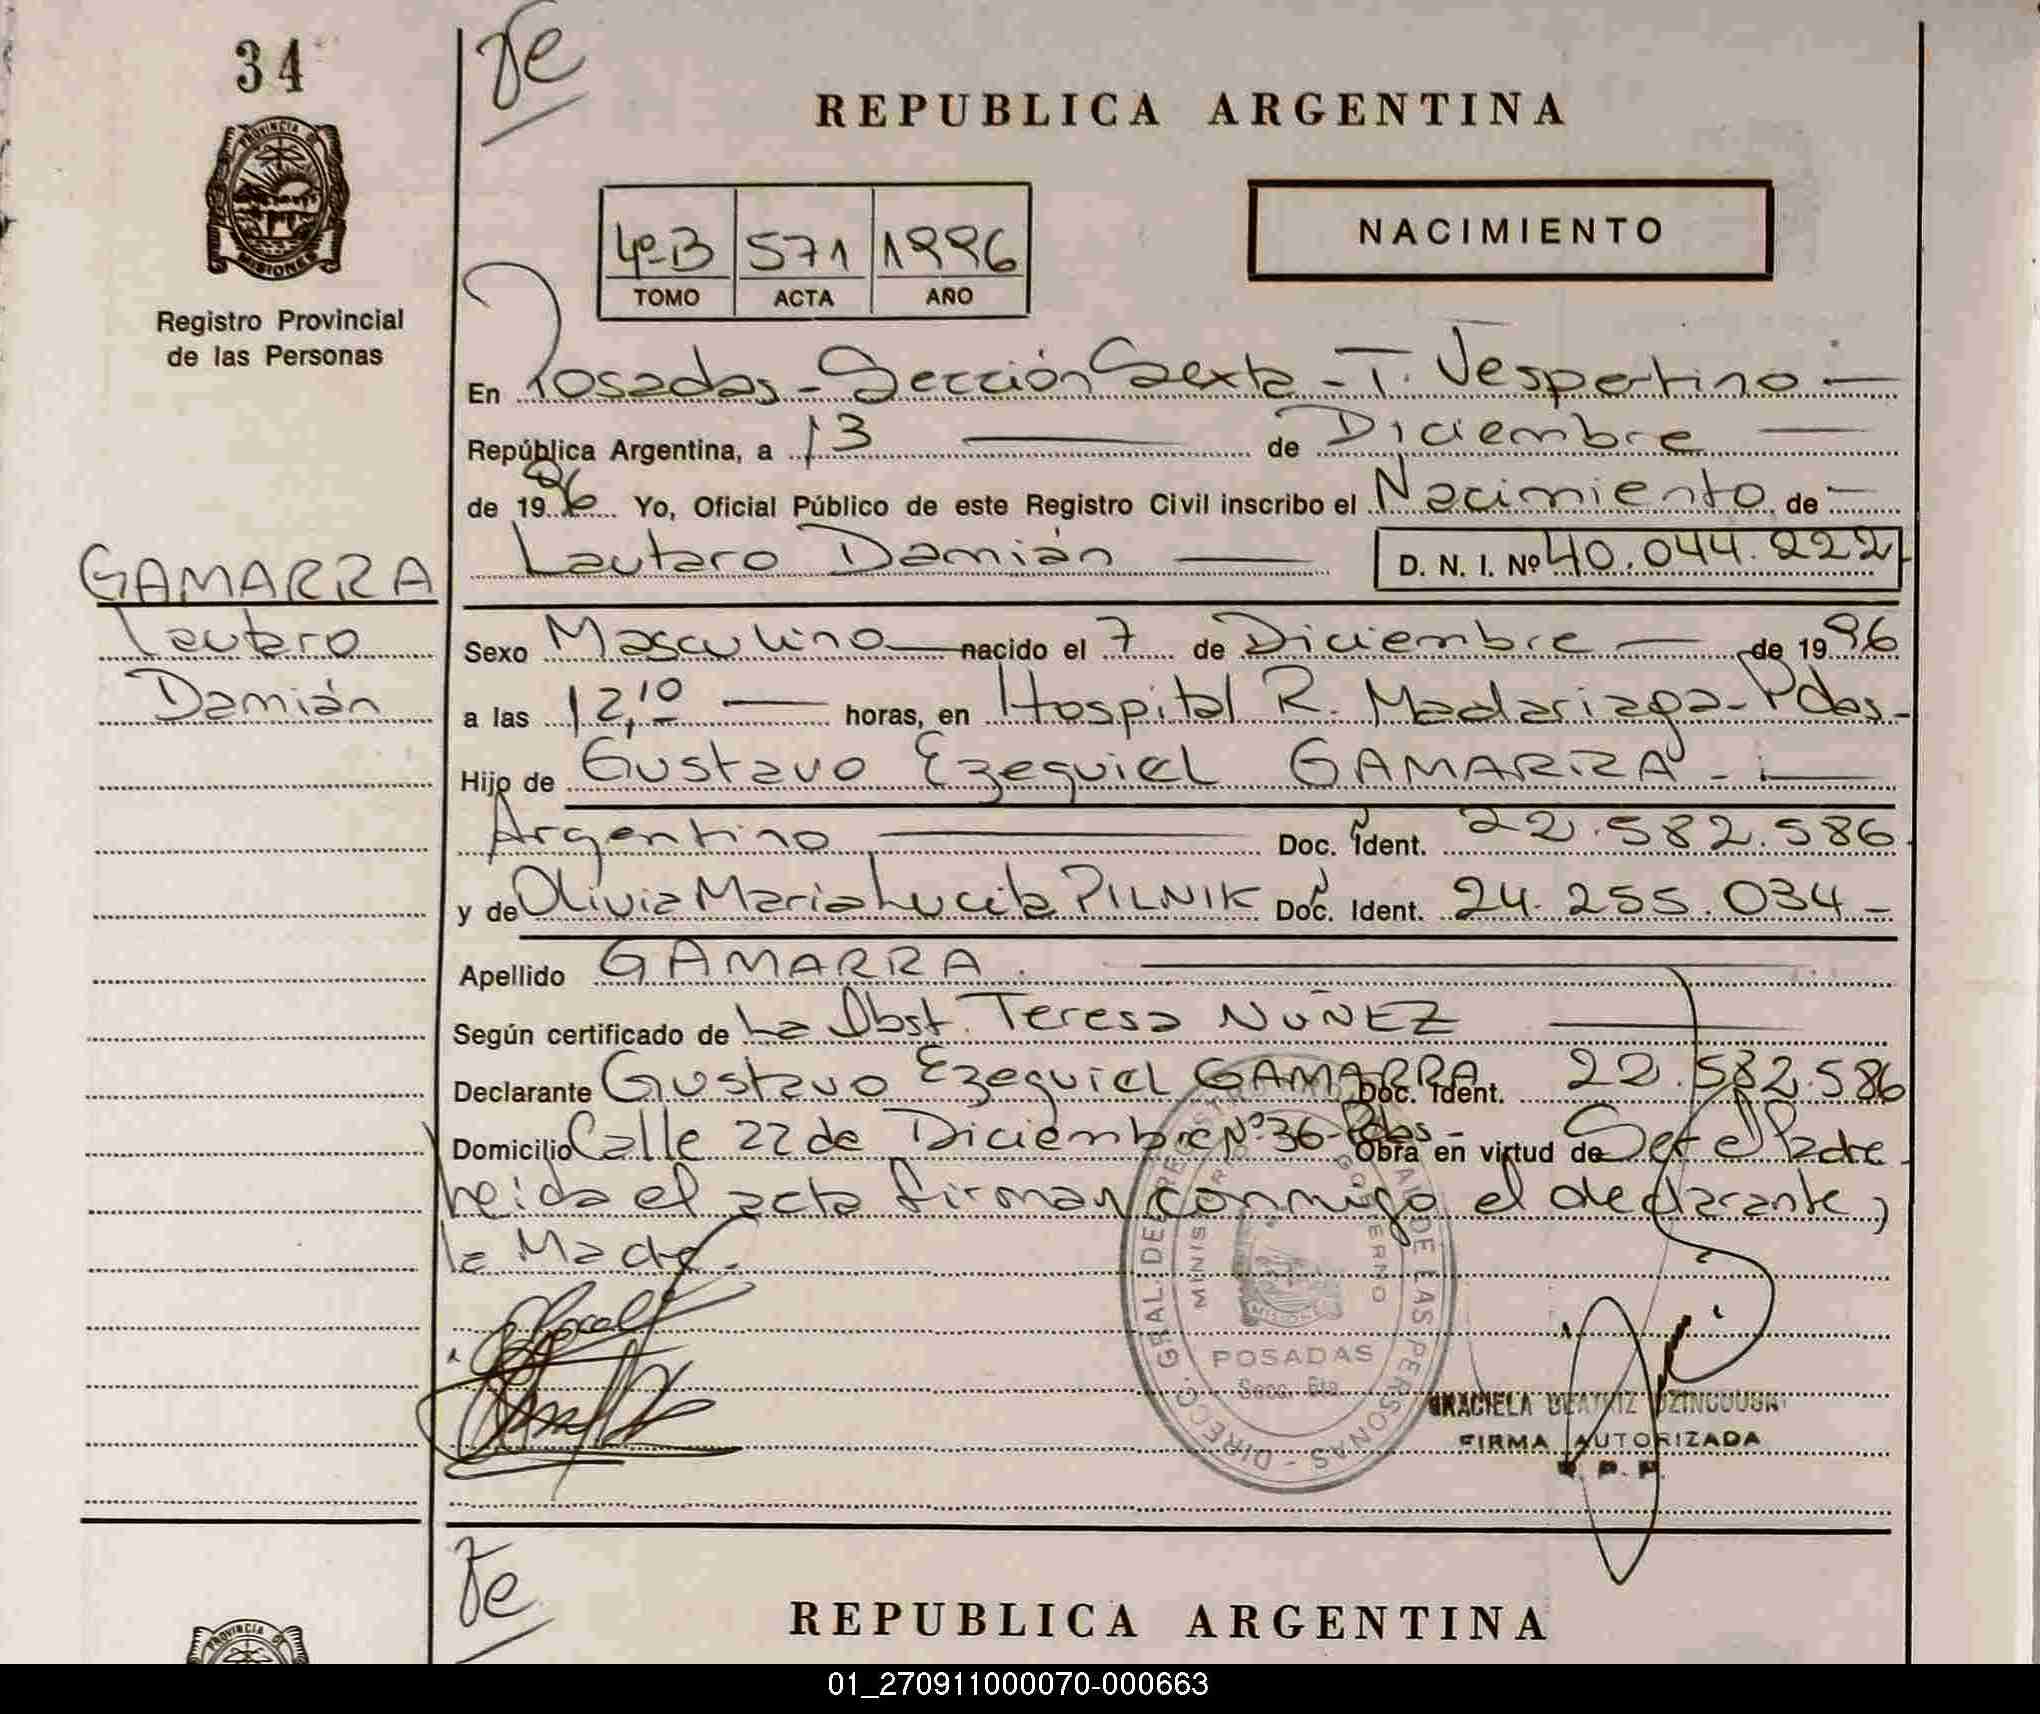 34
Fe
REPUBLICA ARGENTINA
PROVINCIA DE
MISIONES
NACIMIENTO
4º-B 571 1996
TOMO ACTA AÑO
Registro Provincial
de las Personas
En Posadas - Sección Sexta - T. Vespertino —
República Argentina, a 13 — de Diciembre —
de 1996 Yo, Oficial Público de este Registro Civil inscribo el Nacimiento de —
Lautaro Damián — D. N. I. Nº 40.044.222
GAMARRA
Lautaro
Damián
Sexo Masculino — nacido el 7 de Diciembre — de 1996
a las 12,10 — horas, en Hospital R. Madariaga - Pdas -
Hijo de Gustavo Ezequiel GAMARRA - —
Argentino — Doc. Ident. 22.582.586
y de Olivia Maria Lucila PILNIK Doc. Ident. 24.255.034 -
Apellido GAMARRA. —
Según certificado de La Obst. Teresa NUÑEZ —
Declarante Gustavo Ezequiel GAMARRA Doc. Ident. 22.582.586
Domicilio Calle 22 de Diciembre Nº 36 - Pdas - Obra en virtud de Ser el Padre.
Leida el acta firman conmigo el declarante y
la Madre.
DIRECC. GRAL. DEL REGISTRO DE LAS PERSONAS
MINISTERIO GOBIERNO
MISIONES
POSADAS
Secc. 6ta.
GRACIELA BEATRIZ
FIRMA AUTORIZADA
Fe
REPUBLICA ARGENTINA
PROVINCIA DE
01_270911000070-000663